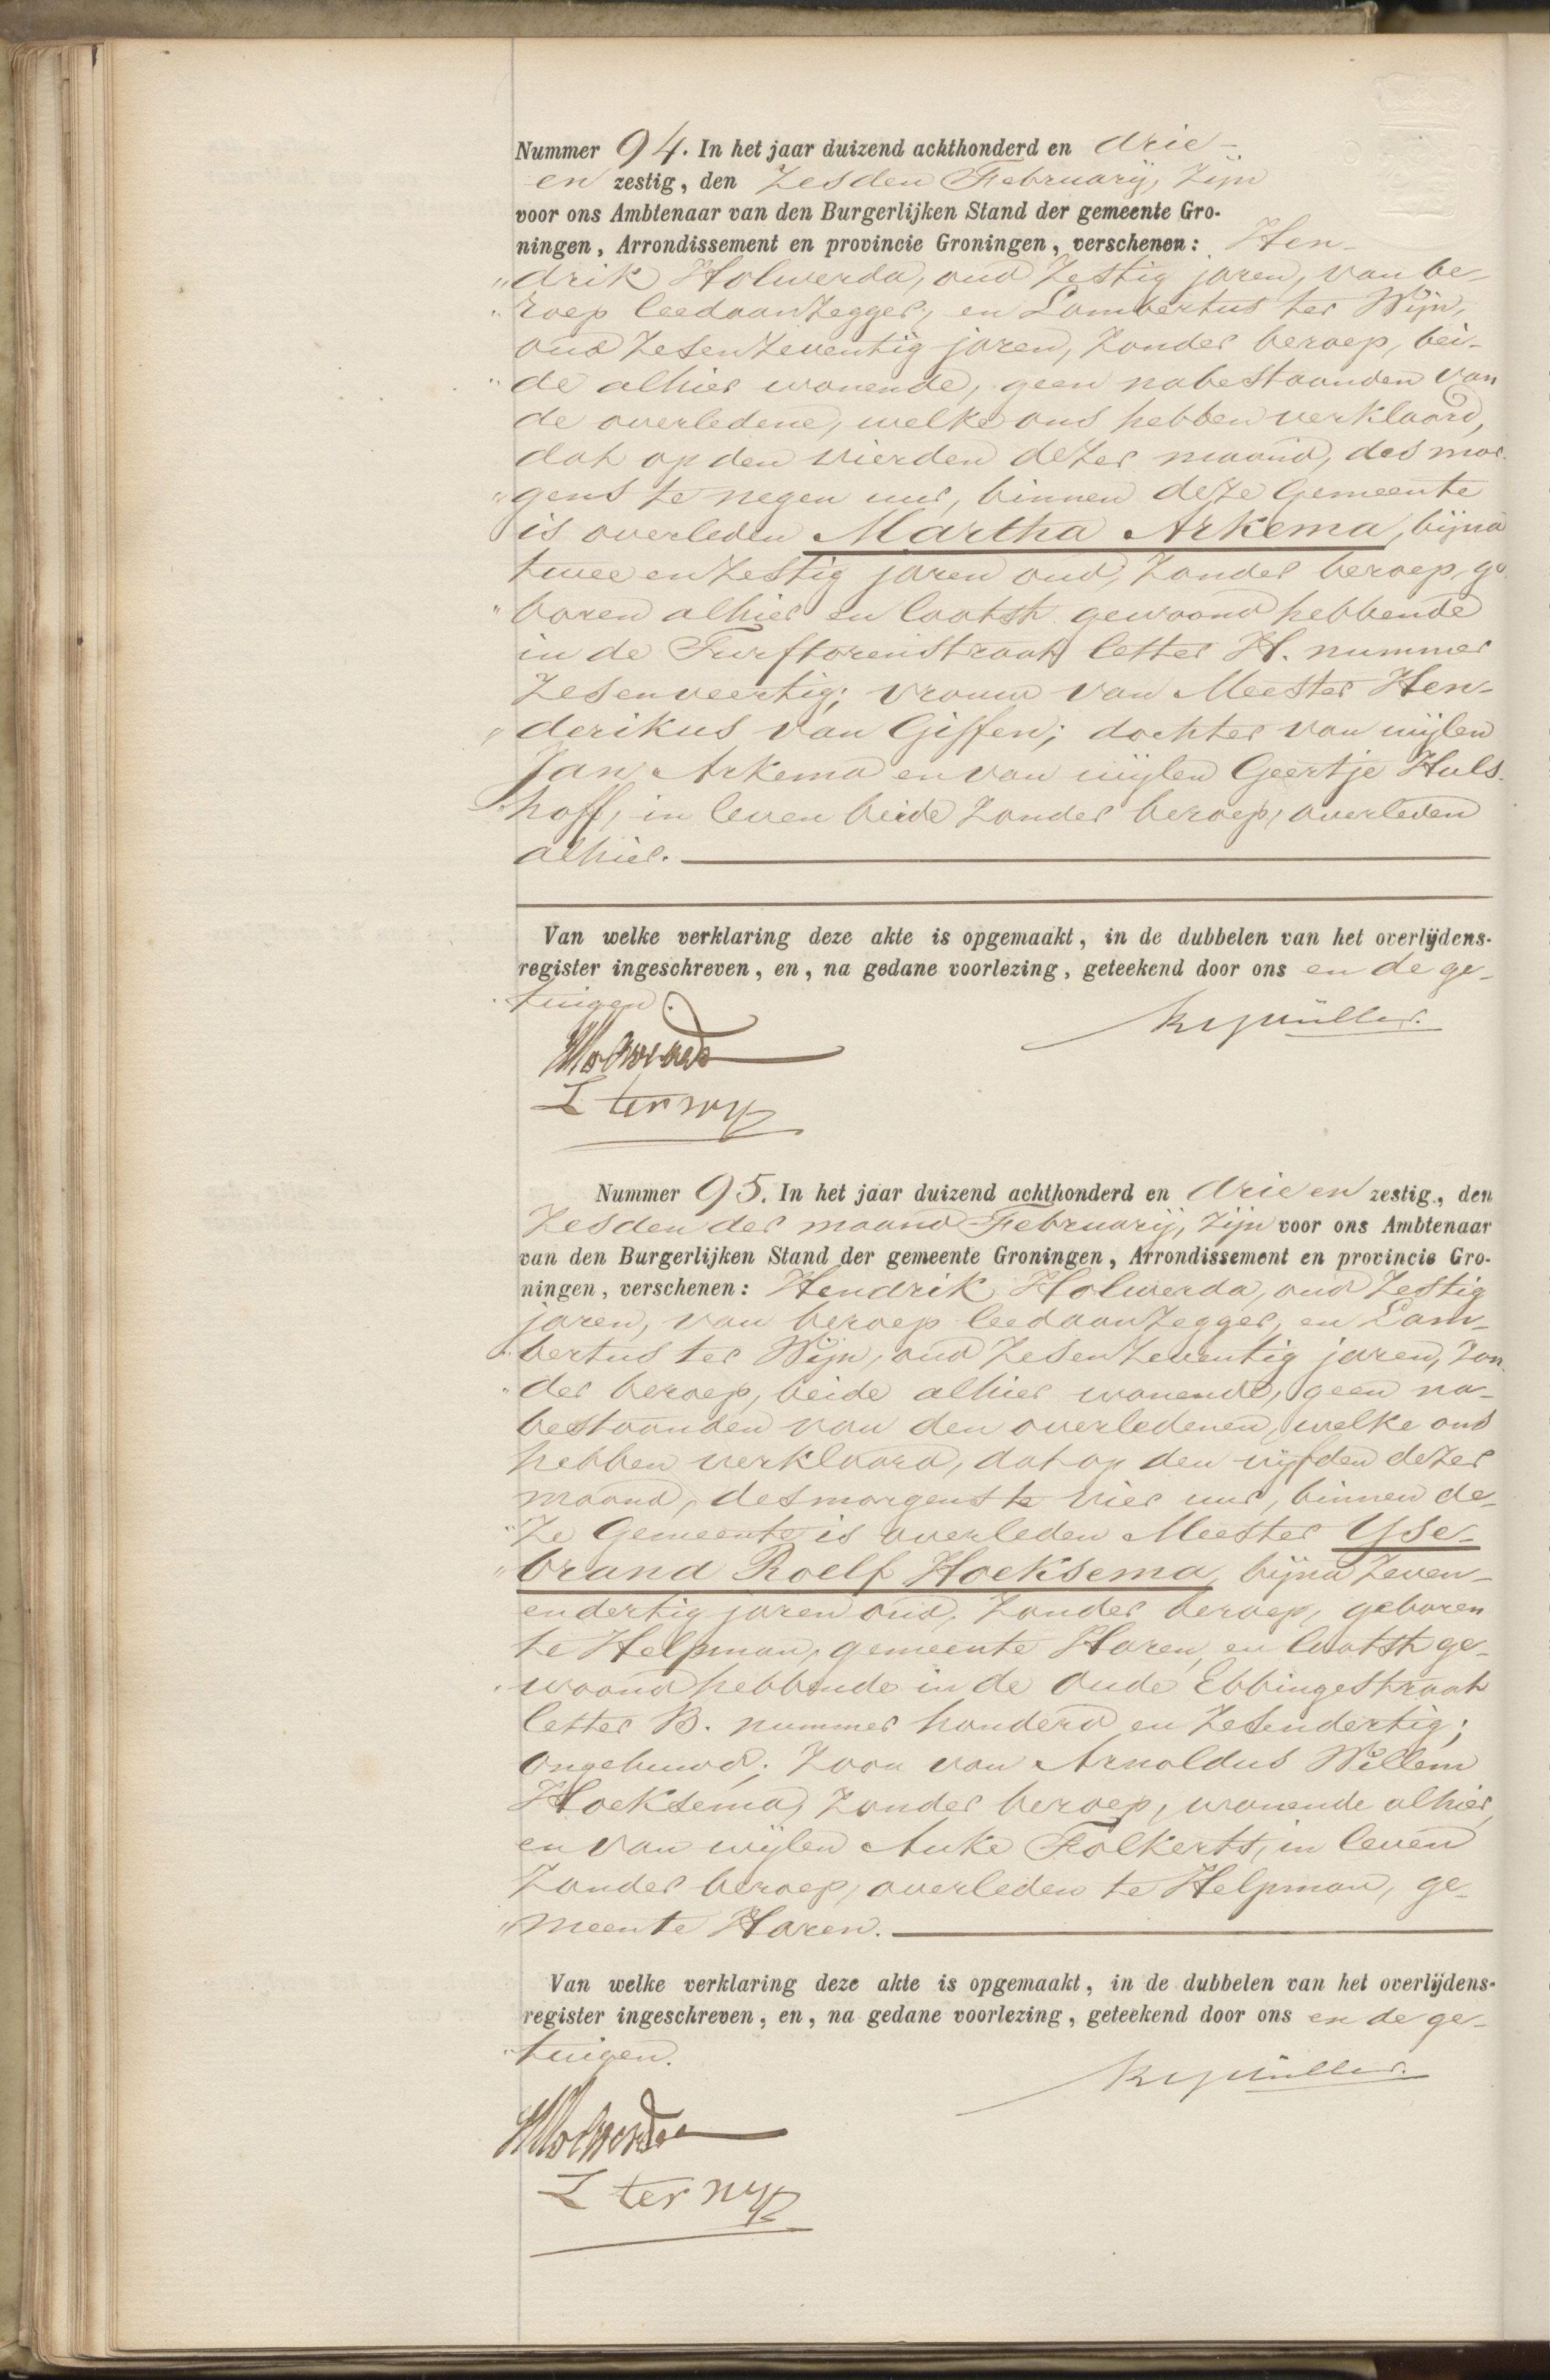 Nummer 94. In het jaar duizend achthonderd en drie-
en zestig, den Zesden Februarij, zijn
voor ons Ambtenaar van den Burgerlijken Stand der gemeente Gro-
ningen, Arrondissement en provincie Groningen, verschenen: Hen-
"drik Holwerda, oud Zestig jaren, van be-
"roep leedaanzegger, en Lambertus ter Wijn,
oud Zesenzeventig jaren, zonder beroep, bei-
"de alhier wonende, geen nabestaanden van
de overledene, welke ons hebben verklaard,
dat op den vierden dezer maand, des mor-
"gens te negen uur, binnen deze Gemeente
is overleden Martha Arkema, bijna
twee en zestig jaren oud, zonder beroep, ge-
"boren alhier en laatst gewoond hebbende
in de Turftorenstraat letter H. nummer
Zesenveertig; vrouw van Meester Hen-
"derikus van Giffen; dochter van wijlen
Jan Arkema en van wijlen Geertje Huls-
"hoff, in leven beide zonder beroep, overleden
alhier.
Van welke verklaring deze akte is opgemaakt, in de dubbelen van het overlijdens-
register ingeschreven, en, na gedane voorlezing, geteekend door ons en de ge-
"tuigen.
Müller.
HHolwerda
L ter wijn
Nummer 95. In het jaar duizend achthonderd en drie en zestig, den
Zesden der maand Februarij, zijn voor ons Ambtenaar
van den Burgerlijken Stand der gemeente Groningen, Arrondissement en provincie Gro-
ningen, verschenen: Hendrik Holwerda, oud Zestig
jaren, van beroep leedaanzegger, en Lam-
"bertus ter Wijn, oud Zesenzeventig jaren, zon-
"der beroep, beide alhier wonende, geen na-
bestaanden van den overledenen, welke ons
hebben verklaard, dat op den vijfden dezer
maand, des morgens te vier uur, binnen de-
"ze Gemeente is overleden Meester Yse-
"brand Roelf Hoeksema, bijna Zeven-
endertig jaren oud, zonder beroep, geboren
te Helpman, gemeente Haren, en laatst ge-
"woond hebbende in de Oude Ebbingestraat
letter B. nummer honderd en Zesendertig;
ongehuwd; zoon van Arnoldus Willem
Hoeksema, zonder beroep, wonende alhier,
en van wijlen Anke Folkerts, in leven
zonder beroep, overleden te Helpman, ge-
"meente Haren.
Van welke verklaring deze akte is opgemaakt, in de dubbelen van het overlijdens-
register ingeschreven, en, na gedane voorlezing, geteekend door ons en de ge-
"tuigen.
Müller.
HHolwerda
L ter wijn